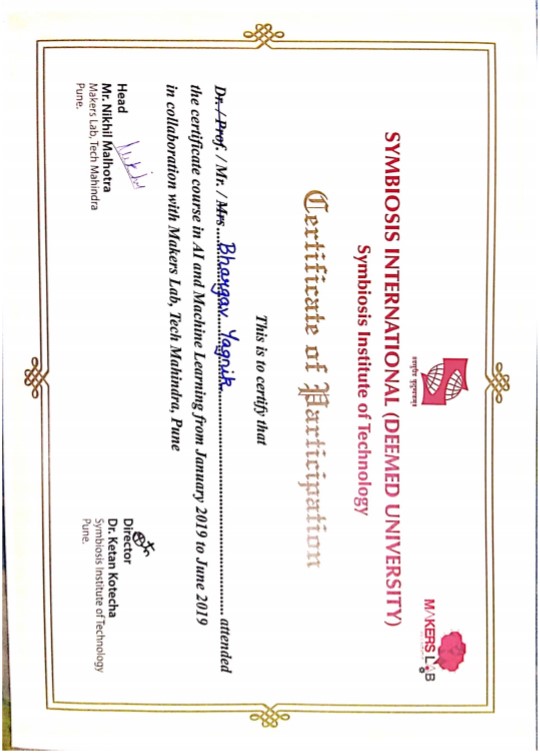 MAKERS LAB
SYMBIOSIS INTERNATIONAL (DEEMED UNIVERSITY)
Symbiosis Institute of Technology
Certificate of Participation
This is to certify that
Dr. / Prof. / Mr. / Mrs ....Bhargav Yagnik.... attended
the certificate course in AI and Machine Learning from January 2019 to June 2019
in collaboration with Makers Lab, Tech Mahindra, Pune
Head
Mr. Nikhil Malhotra
Makers Lab, Tech Mahindra
Pune.
Director
Dr. Ketan Kotecha
Symbiosis Institute of Technology
Pune.